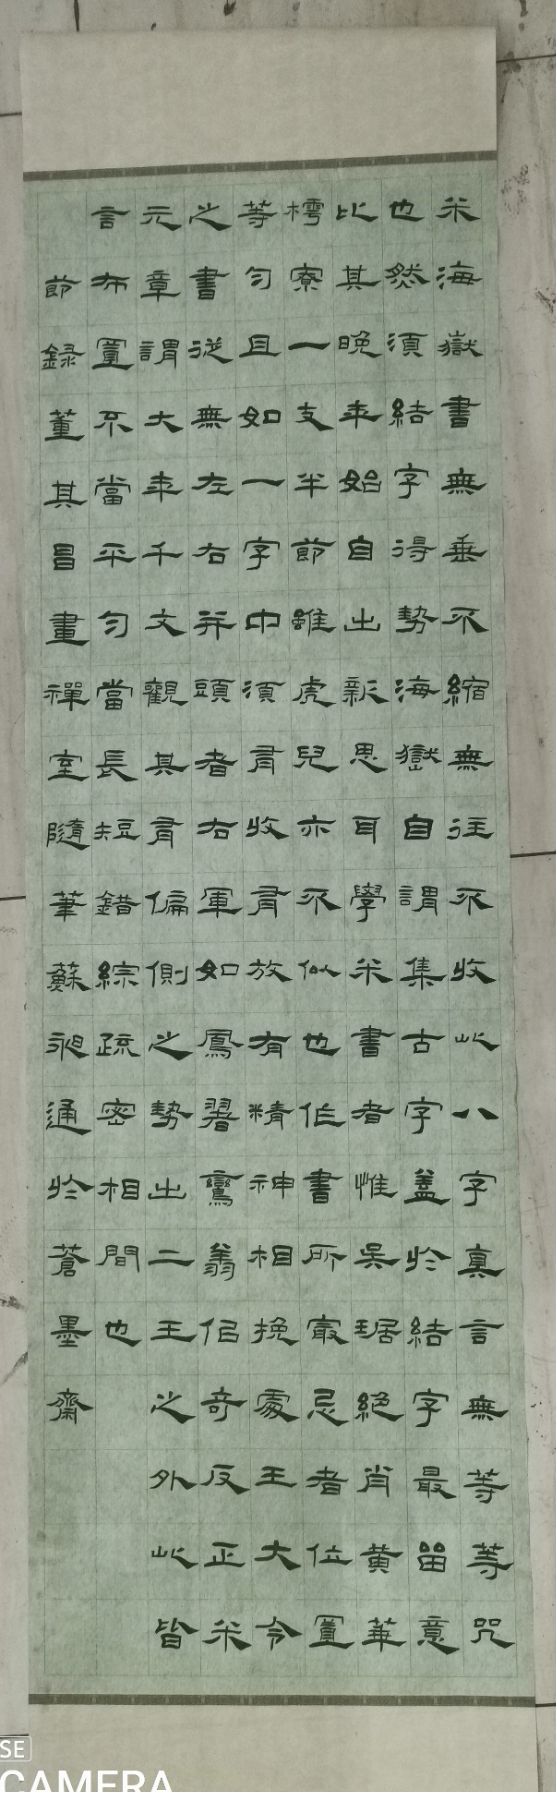 米海嶽書無垂不縮無往不收此八字真言無等等咒
也然須結字得勢海嶽自謂集古字蓋於結字最留意
比其晚年始自出新思耳學米書者惟吳琚絕肖黃華
樗寮一支半節雖虎兒亦不似也作書所最忌者位置
等勻且如一字中須有收有放有精神相挽處王大令
之書從無左右并頭者右軍如鳳翥鸞翥似奇反正米
元章謂大年千文觀其有偏側之勢出二王之外此皆
言布置不當平勻當長短錯綜疏密相間也
節録董其昌畫禪室隨筆蘇昶通於蒼墨齋
SE
CAMERA